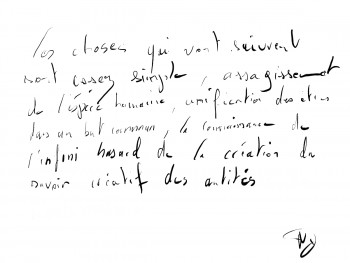 les choses qui vont suivrent
sont assez simple, assagissement
de l'espèce humaine, unification des êtres
dans un but commun, la connaissance de
l'infini hasard de la création du
savoir créatif des entités